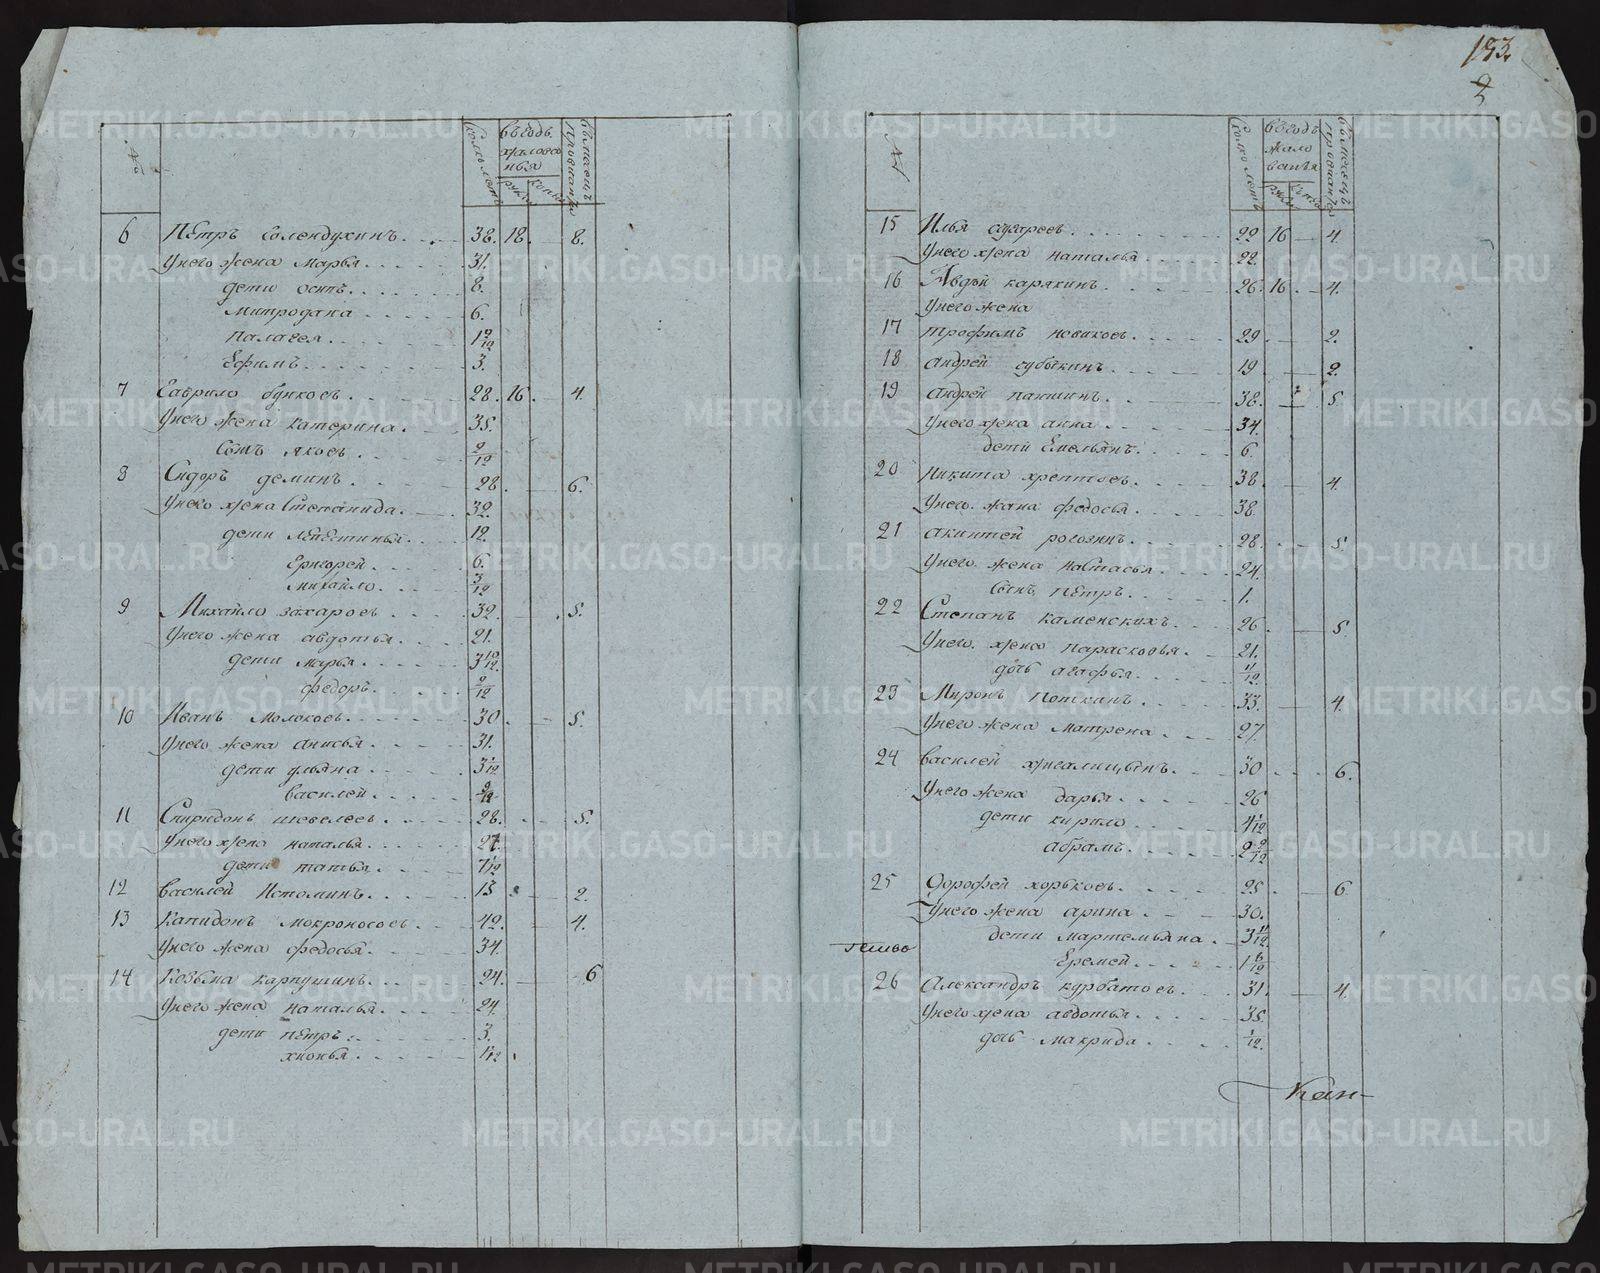 193.
2
№
Сколко летъ
Въ годъ жалованья
рубли
копей
Въ месецъ провианта
6 Пётръ Солендухинъ 38. 18. 8.
У него жена марья 31.
дети осипъ 8.
митродана 6.
палагея 1 9/12
Ефимъ 3.
7 Гаврило буикоеъ 28. 16. 4.
У него жена катерина 35.
Сынъ яковъ 9/12
8 Сидоръ деминъ 28. 6.
У него жена Степанида 32.
дети 12.
Григорей 6.
михайло 3/12
9 Михайло захаровъ 32. 5.
У него жена авдотья 21.
дети марья 3 10/12
федоръ 9/12
10 Иванъ Молоковъ 30. 5.
У него жена анисья 31.
дети ульяна 3 1/12
василей 9/12
11 Спиридонъ шевелевъ 28. 5.
У него жена наталья 27.
дети татья 7 1/12
12 василей Истоминъ 13 2.
13 Капидонъ мокроносовъ 42. 4.
У него жена федосья 34.
14 Козьма карпушинъ 24. 6
У него жена наталья 24.
дети пётръ 3.
хионья 1 1/12
№
Сколко летъ
Въ годъ жалованья
рубли
копей
Въ месецъ провианта
15 Илья сухаревъ 22 16 4.
У него жена наталья 22.
16 Авдѣй карякинъ 26. 16. 4.
У него жена
17 трофимъ новиковъ 29. 2.
18 андрей субыкинъ 19 2.
19 андрей папшинъ 38. 5.
У него жена анна 34.
дети Емельянъ 6.
20 Никита хрептовъ 38. 4.
У него жана федосья 38.
21 акинтей рогозинъ 28. 5.
У него жена настасья 24.
Сынъ пётръ 1.
22 Степанъ каменскихъ 26. 5.
У него жена парасковья 21.
дочь агафья 11/12
23 Миронъ поткинъ 33. 4.
У него жена матрена 27.
24 василей жигалицынъ 30 6.
У него жена дарья 26
дети кирило 4 1/12
абрамъ 2 9/12
25 Дорофей хорьковъ 25. 6
У него жена арина 30.
дети мартемьяна 3 11/12
Еремей 1 6/12
26 Александръ курбатовъ 31. 4.
У него жена авдотья 35.
дочь макрида 1/12.
Кан-
METRIKI.GASO-URAL.RU